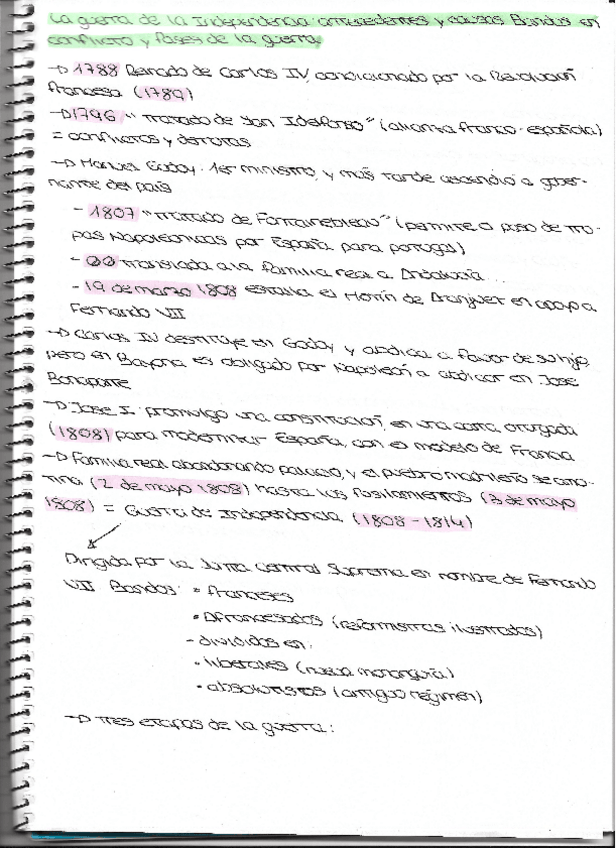 La guerra de la Independencia: antecedentes y causas Bandos en
conflicto y fases de la guerra
→ 1788 Reinado de Carlos IV, condicionado por la Revolución
francesa (1789)
→ 1796 "Tratado de San Ildefonso" (alianza franco-española)
= conflictos y derrotas
→ Manuel Godoy: 1er ministro, y más tarde ascendió a gober-
nante del país
- 1807 "Tratado de Fontainebleau" (permite el paso de tro-
pas Napoleónicas por España para portugal)
- translada a la familia real a Andalucía...
- 19 de marzo 1808 estalla el Motín de Aranjuez en apoyo a
Fernando VII
→ Carlos IV destituye en Godoy y abdica a favor de su hijo,
pero en Bayona es obligado por Napoleón a abdicar en Jose
Bonaparte
→ Jose I: promulgó una constitución, en una carta otorgada
(1808) para modernizar España, con el modelo de Francia
→ Familia real abandonando palacio, y el pueblo madrileño se amo-
tina (2 de mayo 1808) hasta los fusilamientos (3 de mayo
1808) = Guerra de Independencia (1808-1814)
Dirigida por la Junta Central Suprema en nombre de Fernando
VII Bandos: • franceses
• Afrancesados (reformistas ilustrados)
- divididos en:
• liberales (nueva monarquía)
• absolutistas (antiguo régimen)
→ Tres etapas de la guerra: